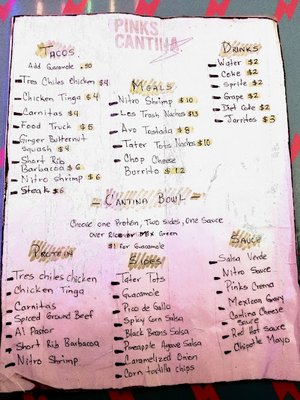 PINKS
CANTINA
TACOS
Add Guacamole .50
Tres Chiles Chicken $4
Chicken Tinga $4
Carnitas $4
Food Truck $5
Ginger Butternut
Squash $4
Short Rib
Barbacoa $6
Nitro Shrimp $6
Steak $6
MEALS
Nitro Shrimp $10
Les Trash Nachos $13
Avo Tostada $8
Tater Tots Nachos $10
Chop Cheese
Borrito $12
DRINKS
Water $2
Coke $2
Sprite $2
Grape $2
Diet Coke $2
Jarritos $3
CANTINA BOWL
Choose one Protein, Two sides, One Sauce
Over Rice or Mix Green
$1 for Guacamole
PROTEIN
Tres chiles chicken
Chicken Tinga
Carnitas
Spiced Ground Beef
Al Pastor
Short Rib Barbacoa
Nitro Shrimp
SIDES
Tater Tots
Guacamole
Pico de Gallo
Spicy Corn Salsa
Black Beans Salsa
Pineapple Agave Salsa
Caramelized Onion
Corn tortilla chips
SAUCE
Salsa Verde
Nitro Sauce
Pinks Crema
Mexican Gravy
Cantina Cheese
Sauce
Red Hot Sauce
Chipotle Mayo